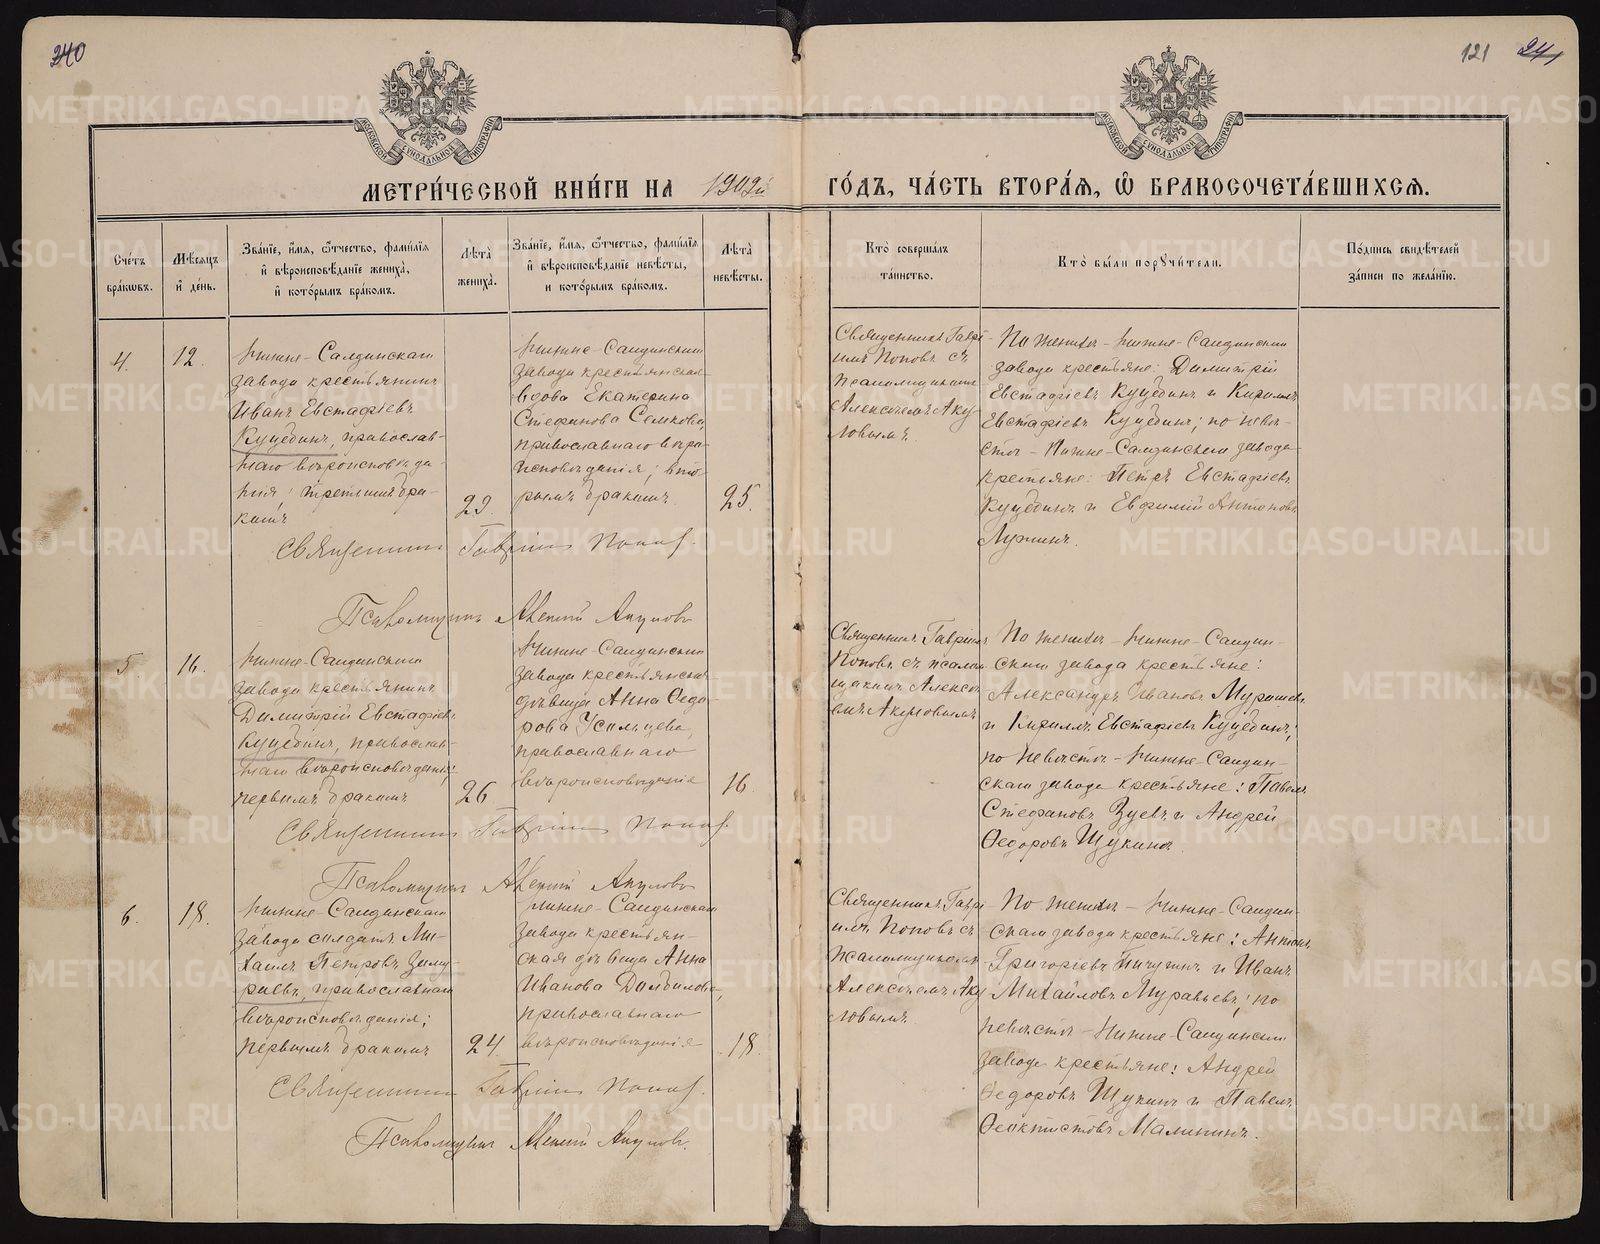 240
121 241
МОСКОВСКОЙ СѴНОДАЛЬНОЙ ТИПОГРАФІИ
МОСКОВСКОЙ СѴНОДАЛЬНОЙ ТИПОГРАФІИ
МЕТРИ́ЧЕСКОЙ КНИ́ГИ НА 1909й ГО́ДЪ, ЧА́СТЬ ВТОРА́Я, Ѡ҆ БРАКОСОЧЕТА́ВШИХСЯ.
Сче́тъ
бра́кωвъ.
Мѣ́сяцъ
и҆ де́нь.
Зва́нїе, и҆́мя, ѻ҆́тчество, фами́лїя
и҆ вѣроисповѣ́данїе жениха̀,
и҆ кото́рымъ бра́комъ.
Лѣта̀
жениха̀.
Зва́нїе, и҆́мя, ѻ҆́тчество, фами́лїя
и҆ вѣроисповѣ́данїе невѣ́сты,
и кото́рымъ бра́комъ.
Лѣта̀
невѣ́сты.
Кто̀ соверша́лъ
та́инство.
Кто̀ бы́ли порꙋчи́тели.
По́дпись свидѣ́телей
за́писи по жела́нїю.
4.
12.
Нижне-Салдинскаго
завода крестьянинъ
Иванъ Евстафіевъ
Куцебинъ, православ-
наго вѣроисповѣда-
нія; третьимъ бра-
комъ
29.
Нижне-Салдинскаго
завода крестьянская
вдова Екатерина
Стефанова
православнаго вѣро-
исповѣданія; вто-
рымъ бракомъ
25.
Священникъ Гаврі-
илъ Поповъ съ
псаломщикомъ
Алексѣемъ Аку-
ловымъ.
По женихѣ - Нижне-Салдинскаго
завода крестьяне: Димитрій
Евстафіевъ Куцебинъ и Кириллъ
Евстафіевъ Куцебинъ; по невѣ-
стѣ - Нижне-Салдинскаго завода
крестьяне: Петръ Евстафіевъ
Куцебинъ и Евфимій Антоновъ
Священникъ Гавріилъ Поповъ.
Псаломщикъ Алексѣй Акуловъ
5.
16.
Нижне-Салдинскаго
завода крестьянинъ
Димитрій Евстафіевъ
Куцебинъ, православ-
наго вѣроисповѣданія;
первымъ бракомъ
26
Нижне-Салдинскаго
завода крестьянская
дѣвица Анна Ѳедо-
рова Усольцева,
православнаго
вѣроисповѣданія
16.
Священникъ Гавріилъ
Поповъ съ псалом-
щикомъ Алексѣ-
емъ Акуловымъ
По женихѣ - Нижне-Салдин-
скаго завода крестьяне:
Александръ Ивановъ
и Кириллъ Евстафіевъ Куцебинъ;
по невѣстѣ - Нижне-Салдин-
скаго завода крестьяне: Павелъ
Стефановъ Зуевъ и Андрей
Ѳедоровъ Щукинъ
Священникъ Гавріилъ Поповъ.
Псаломщикъ Алексѣй Акуловъ
6.
18.
Нижне-Салдинскаго
завода солдатъ Ми-
хаилъ Петровъ
православнаго
вѣроисповѣданія;
первымъ бракомъ
24.
Нижне-Салдинскаго
завода крестьян-
ская дѣвица Анна
Иванова
православнаго
вѣроисповѣданія
18.
Священникъ Гаврі-
илъ Поповъ съ
псаломщикомъ
Алексѣемъ Аку-
ловымъ
По женихѣ - Нижне-Салдин-
скаго завода крестьяне: Антонъ
Григоріевъ Пичугинъ и Иванъ
Михайловъ Муравьевъ; по
невѣстѣ - Нижне-Салдинскаго
завода крестьяне: Андрей
Ѳедоровъ Щукинъ и Павелъ
Ѳеоктистовъ Малининъ.
Священникъ Гавріилъ Поповъ.
Псаломщикъ Алексѣй Акуловъ.
METRIKI.GASO-URAL.RU